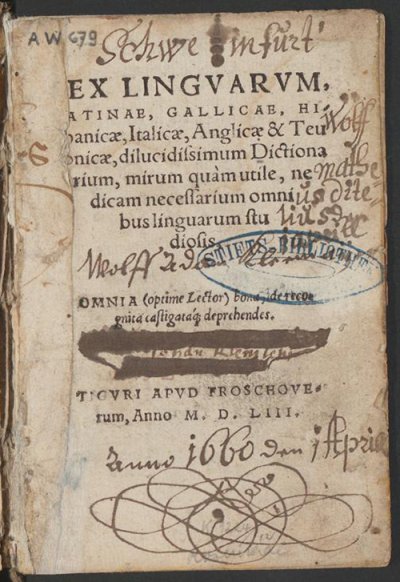 A W 679
Schwe infurt
EX LINGVARVM,
ATINAE, GALLICAE, HI-
panicæ, Italicæ, Anglicæ & Teu
onicæ, dilucidissimum Dictiona
rium, mirum quàm utile, ne
dicam necessarium omni
bus linguarum stu
diosis.
Wolff
STIFTS BIBLIOTHEK
Wolff Adam
OMNIA (optime Lector) bona fide recog
gnita castigataq; deprehendes.
TIGVRI APVD FROSCHOVE-
rum, Anno M. D. LIII.
Anno 1660 den 1 Aprill